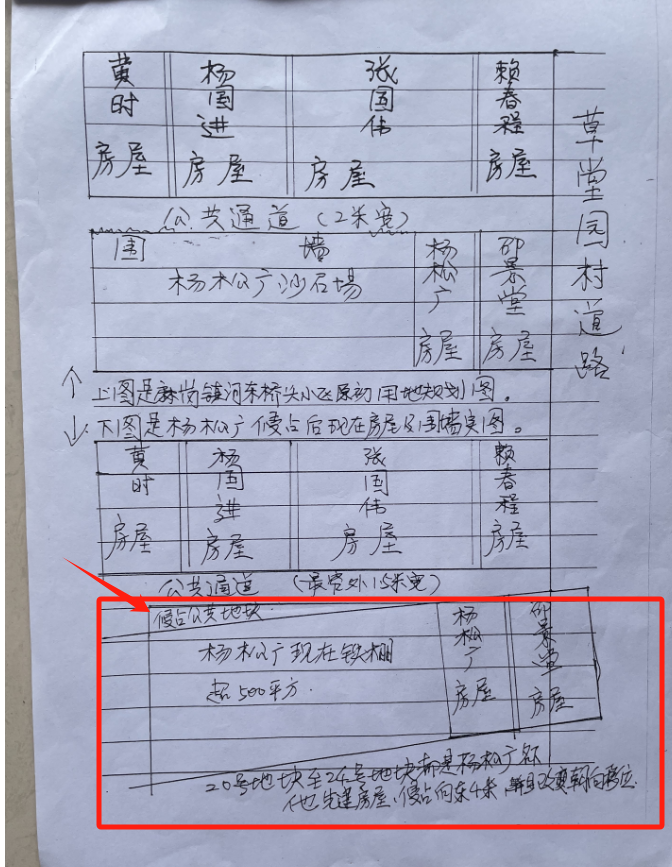 黄时房屋
杨国进房屋
张国伟房屋
赖春程房屋
草堂园村道路
公共通道（2米宽）
围墙
杨松广沙石场
杨松广房屋
邓景堂房屋
↑上图是麻岗镇河东桥头小区原初用地规划图。
↓下图是杨松广侵占后现在房屋及围墙实图。
黄时房屋
杨国进房屋
张国伟房屋
赖春程房屋
公共通道（最宽处15米宽）
侵占公共地块
杨松广现在铁棚
超500平方.
杨松广房屋
邓景堂房屋
20号地块至24号地块都是杨松广名
他先建房屋、侵占向东4米，并且改变朝向移位.